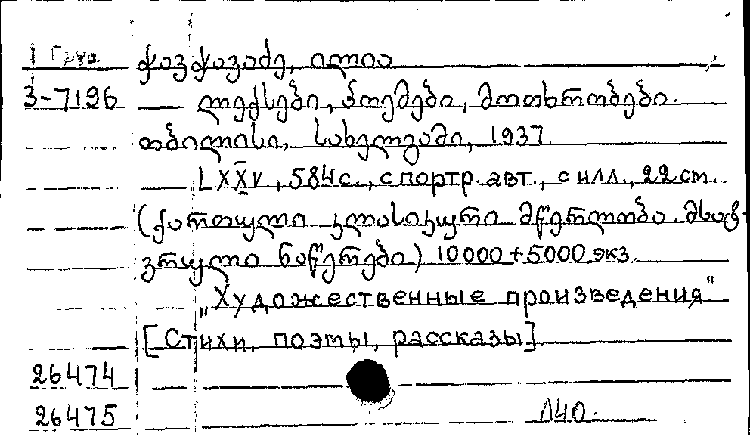 1 Груз. ჭავჭავაძე, ილია
3-7196 ლექსები, პოემები, მოთხრობები.
თბილისი, სახელგამი, 1937
LXXV, 584 с., с портр. авт., с илл., 22 cm.
(ქართული კლასიკური მწერლობა. მხატ-
ვრული ნაწერები) 10000+5000 экз.
„Художественные произведения"
[Стихи, поэмы, рассказы]
26474
26475 Л40.